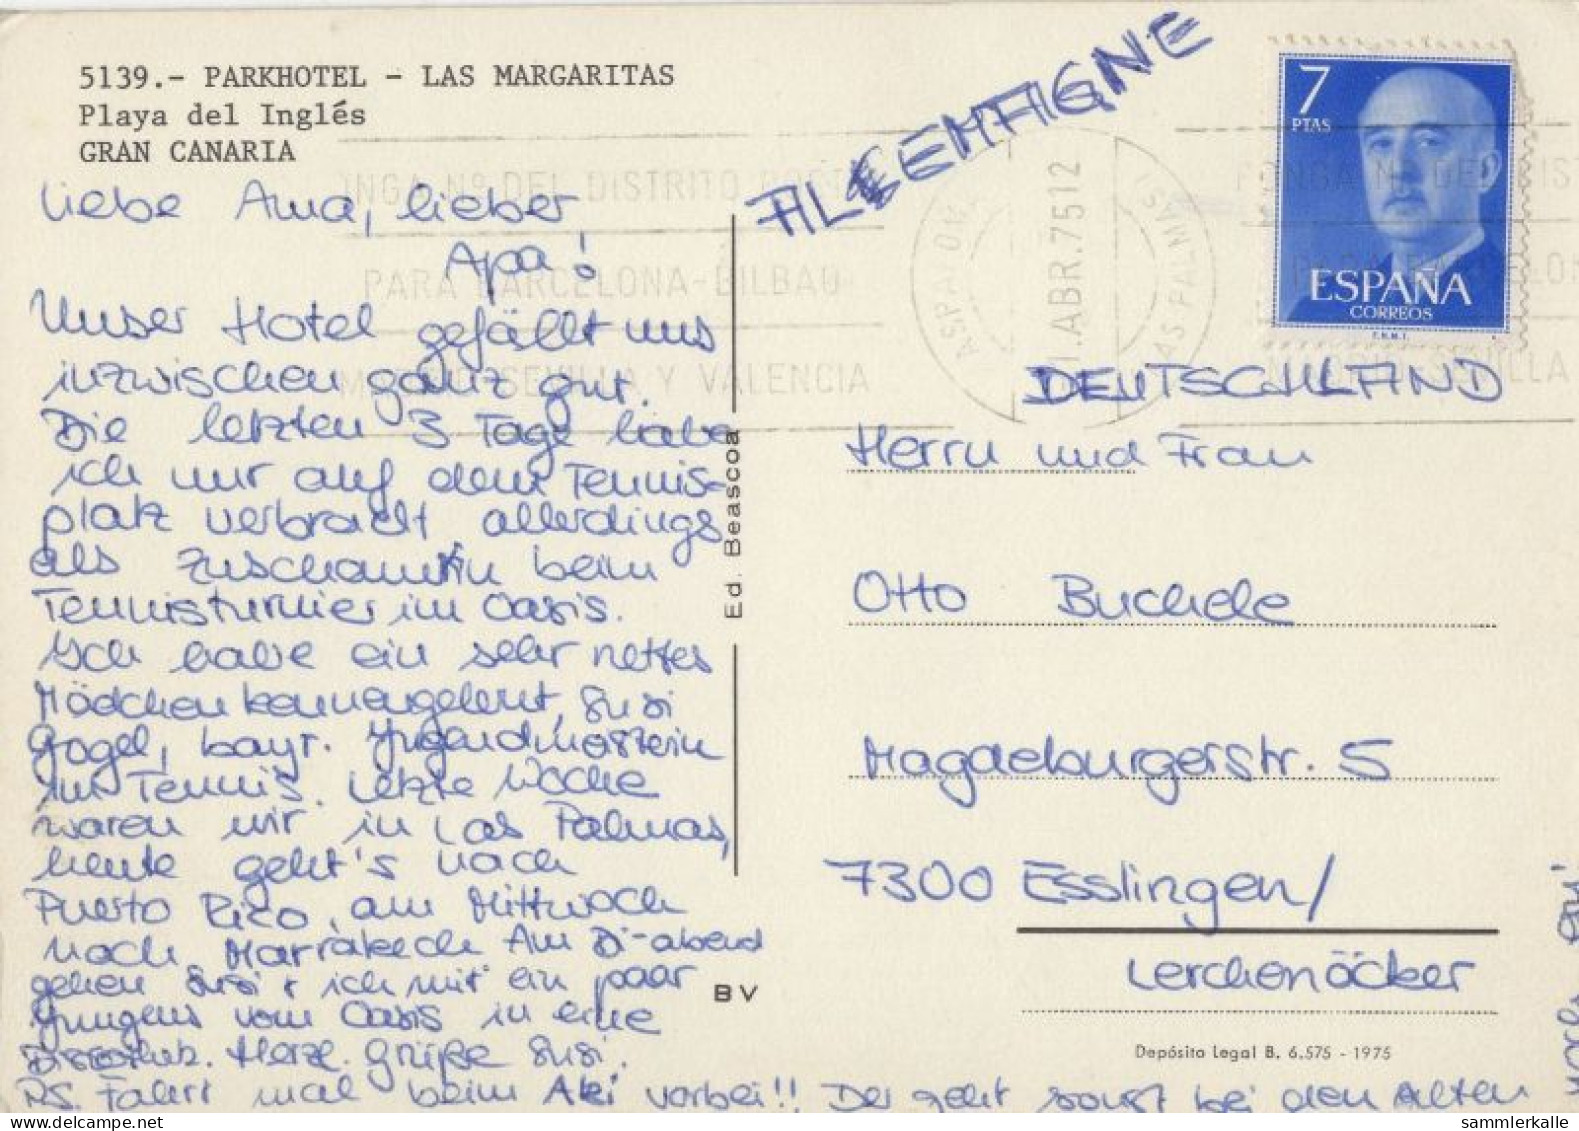 5139.- PARKHOTEL - LAS MARGARITAS
Playa del Inglés
GRAN CANARIA
Liebe Ama, lieber
Apa!
Unser Hotel gefällt uns
inzwischen ganz gut.
Die letzten 3 Tage habe
ich nur auf dem Tennis-
platz verbracht allerdings
als Zuschauerin beim
Tennisturnier im Oasis.
Ich habe ein sehr nettes
Mädchen kennengelernt, Susi
Gogel, bayr. Jugendmeisterin
im Tennis. Letzte Woche
waren wir in Las Palmas,
heute geht's nach
Puerto Rico, am Mittwoch
nach Marrakech Am Di-abend
gehen Susi + ich mit ein paar
Jungens vom Oasis in eine
Herzl. Grüße Susi.
PS. Fahrt mal beim Aki vorbei!! Der geht sonst bei den Alten
noch ein!
Ed. Beascoa
BV
ALLEMAGNE
7
PTAS
ESPAÑA
CORREOS
F.N.M.T.
INGA Nº DEL DISTRITO POSTAL
PARA BARCELONA-BILBAO
MADRID SEVILLA Y VALENCIA
1.ABR.7512
LAS PALMAS
DEUTSCHLAND
Herrn und Frau
Otto Buchele
Magdeburgerstr. 5
7300 Esslingen/
Lerchenäcker
Depósito Legal B. 6.575 - 1975
sammlerkalle